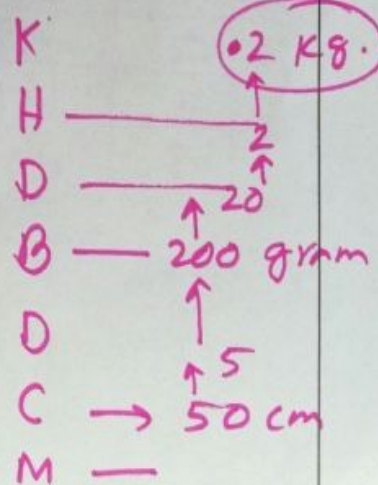 K .2 Kg.
H 2
D 20
B 200 gram
D 5
C 50 cm
M